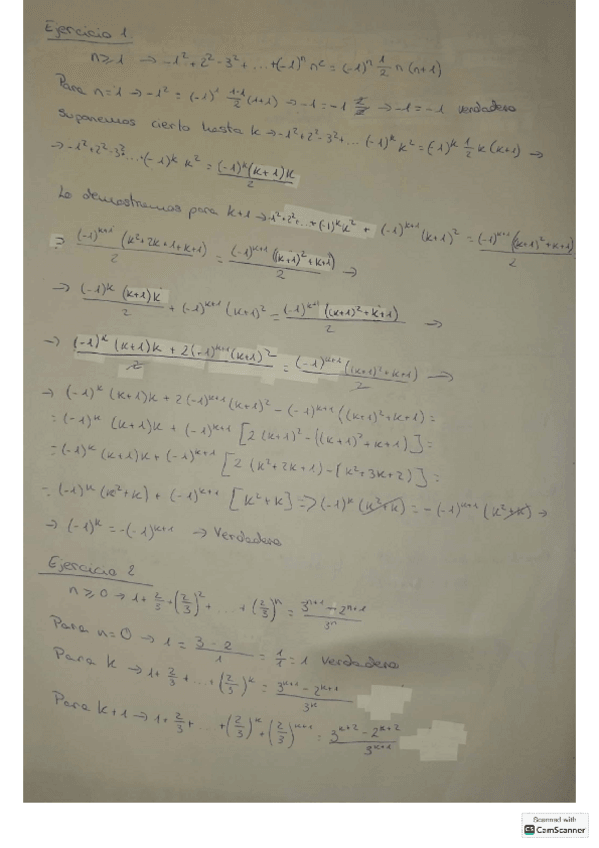 Ejercicio 1.
n≥1 → -1² + 2² - 3² + ... + (-1)ⁿ n² = (-1)ⁿ 1/2 n (n+1)
Para n=1 → -1² = (-1)¹ 1·1/2 (1+1) → -1 = -1 2/2 → -1 = -1 verdadero
Suponemos cierto hasta k → -1² + 2² - 3² + ... (-1)ᵏ k² = (-1)ᵏ 1/2 k (k+1) →
→ -1² + 2² - 3² ... + (-1)ᵏ k² = (-1)ᵏ (k+1) k / 2
Lo demostramos para k+1 → -1² + 2² + ... + (-1)ᵏ k² + (-1)ᵏ⁺¹ (k+1)² = (-1)ᵏ⁺¹ ((k+1)² + k+1) / 2
= (-1)ᵏ⁺¹ (k² + 2k + 1 + k + 1) / 2 = (-1)ᵏ⁺¹ ((k+1)² + k+1) / 2 →
→ (-1)ᵏ (k+1) k / 2 + (-1)ᵏ⁺¹ (k+1)² = (-1)ᵏ⁺¹ ((k+1)² + k+1) / 2 →
→ (-1)ᵏ (k+1) k + 2 (-1)ᵏ⁺¹ (k+1)² / 2 = (-1)ᵏ⁺¹ ((k+1)² + k+1) / 2 →
→ (-1)ᵏ (k+1) k + 2 (-1)ᵏ⁺¹ (k+1)² - (-1)ᵏ⁺¹ ((k+1)² + k+1) =
= (-1)ᵏ (k+1) k + (-1)ᵏ⁺¹ [2 (k+1)² - ((k+1)² + k+1)] =
= (-1)ᵏ (k+1) k + (-1)ᵏ⁺¹ [2 (k² + 2k + 1) - (k² + 3k + 2)] =
= (-1)ᵏ (k² + k) + (-1)ᵏ⁺¹ [k² + k] => (-1)ᵏ (k² + k) = -(-1)ᵏ⁺¹ (k² + k) →
→ (-1)ᵏ = -(-1)ᵏ⁺¹ → Verdadero
Ejercicio 2
n≥0 → 1 + 2/3 + (2/3)² + ... + (2/3)ⁿ = 3ⁿ⁺¹ - 2ⁿ⁺¹ / 3ⁿ
Para n=0 → 1 = 3 - 2 / 1 = 1/1 = 1 Verdadero
Para k → 1 + 2/3 + ... + (2/3)ᵏ = 3ᵏ⁺¹ - 2ᵏ⁺¹ / 3ᵏ
Para k+1 → 1 + 2/3 + ... + (2/3)ᵏ + (2/3)ᵏ⁺¹ = 3ᵏ⁺² - 2ᵏ⁺² / 3ᵏ⁺¹
Scanned with
CS CamScanner